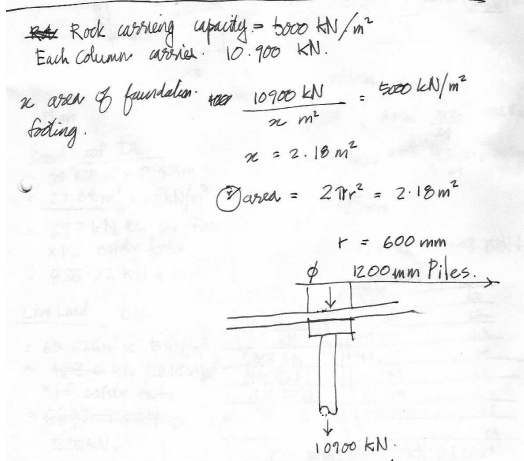 Rock carrieng capacity = 5000 kN/m²
Each Column carries. 10.900 kN.
x area of foundation footing.
10900 kN / x m² = 5000 kN/m²
x = 2.18 m²
area = 2πr² = 2.18 m²
r = 600 mm
ϕ 1200 mm Piles.
10900 kN.